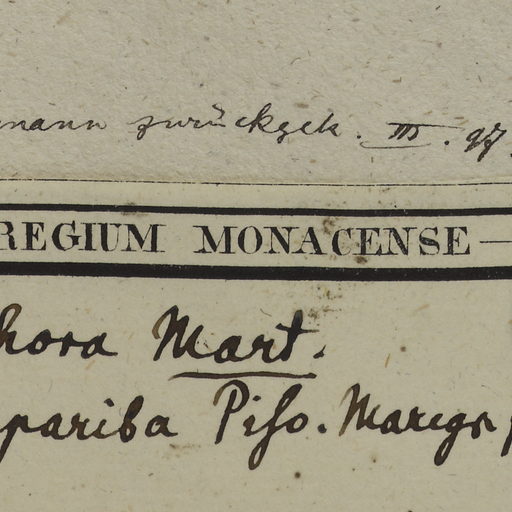 mann zurückgek. III. 97.
REGIUM MONACENSE —
hora Mart.
pariba Piso. Marcgr